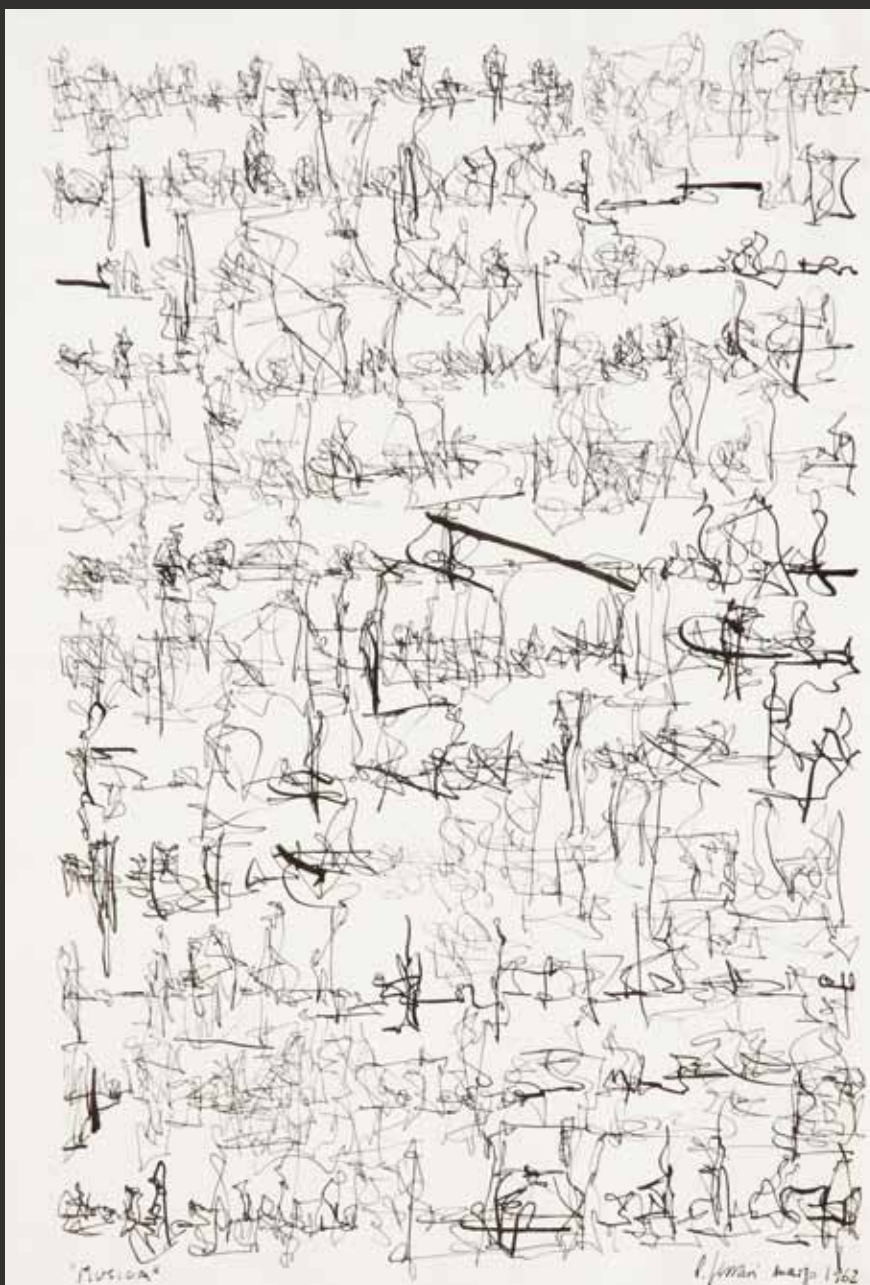 "MUSICA" L. Ferrari marzo 1962